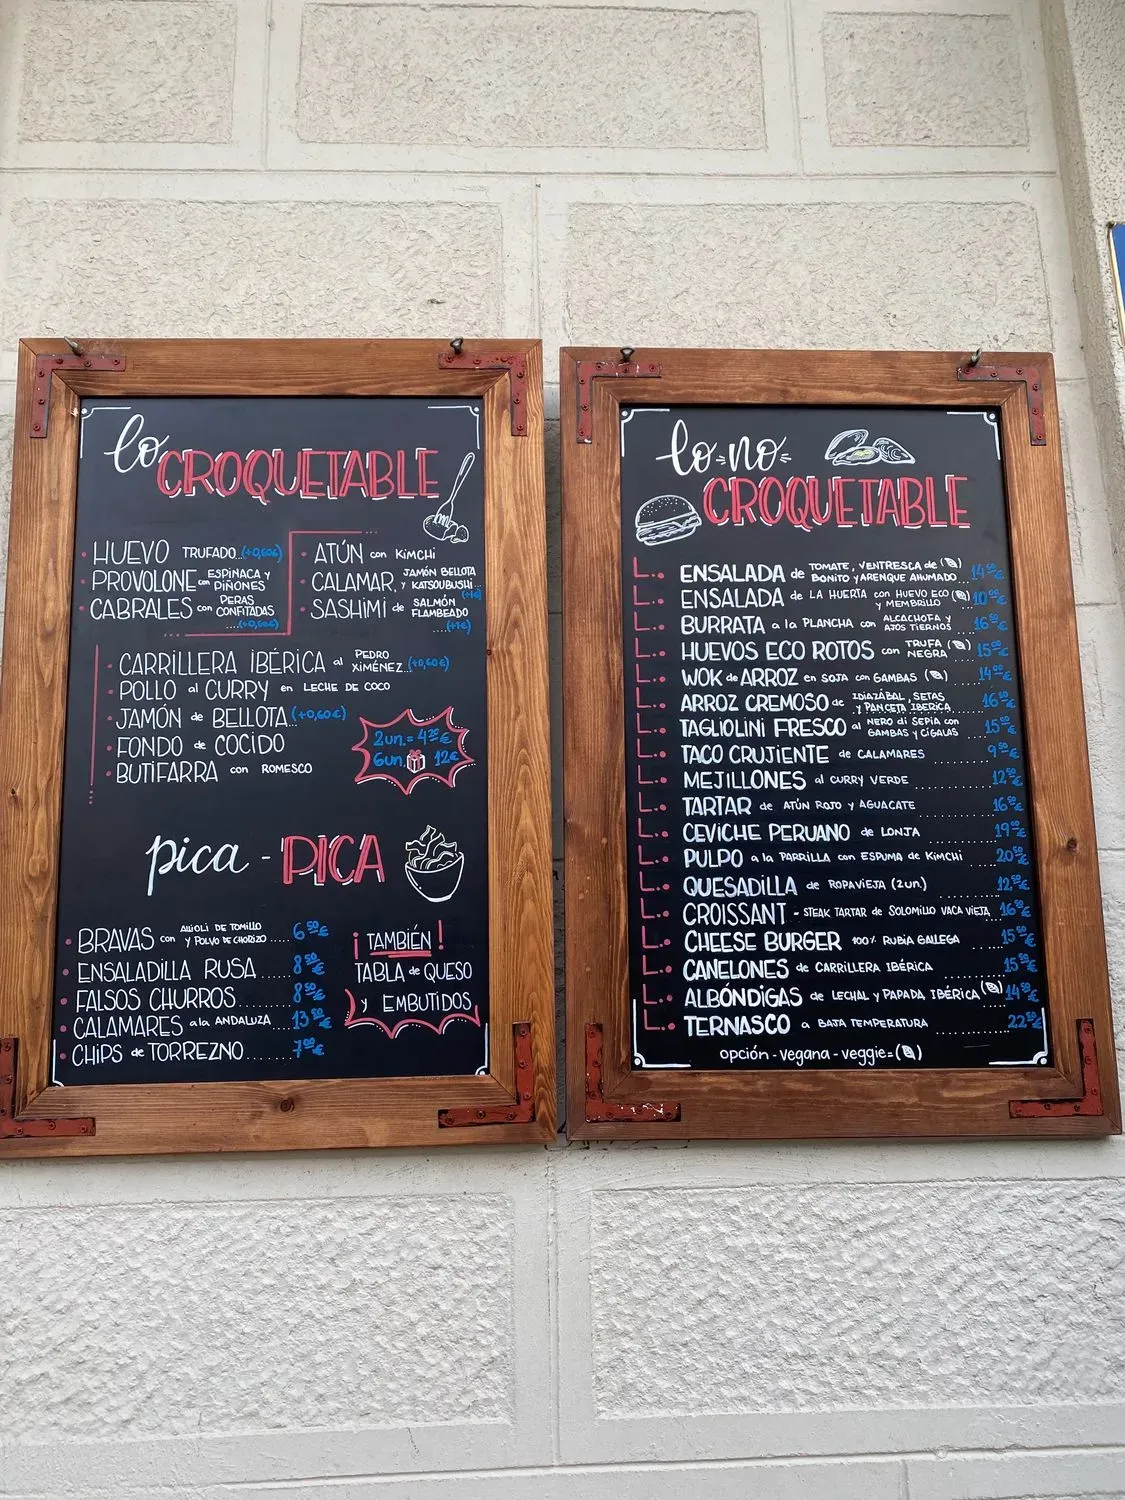 lo
CROQUETABLE
HUEVO TRUFADO..(+0,60€)
PROVOLONE con ESPINACA Y PIÑONES
CABRALES con PERAS CONFITADAS
(+0,60€)
ATÚN con KIMCHI
CALAMAR, JAMÓN BELLOTA Y KATSOUBUSHI...
(+1€)
SASHIMI de SALMÓN FLAMBEADO
....(+1€)
CARRILLERA IBÉRICA al PEDRO XIMÉNEZ..(+0,60€)
POLLO al CURRY en LECHE DE COCO
JAMÓN de BELLOTA.(+0,60€)
FONDO de COCIDO
BUTIFARRA con ROMESCO
2un.= 4,20€
6un. 12€
pica - PICA
BRAVAS con ALLIOLI DE TOMILLO Y POLVO DE CHORIZO .... 6,50€
ENSALADILLA RUSA..... 8,50€
FALSOS CHURROS....... 8,50€
CALAMARES a la ANDALUZA... 13,50€
CHIPS de TORREZNO...... 7,00€
¡TAMBIÉN!
TABLA de QUESO
y EMBUTIDOS
lo no
CROQUETABLE
ENSALADA de TOMATE, VENTRESCA de BONITO y ARENQUE AHUMADO... 14,50€
ENSALADA de LA HUERTA con HUEVO ECO y MEMBRILLO 10,00€
BURRATA a la PLANCHA con ALCACHOFA y AJOS TIERNOS ... 16,50€
HUEVOS ECO ROTOS con TRUFA NEGRA .... 15,00€
WOK de ARROZ en SOJA con GAMBAS .... 14,00€
ARROZ CREMOSO de IDIAZÁBAL, SETAS y PANCETA IBÉRICA .... 16,50€
TAGLIOLINI FRESCO al NERO di SEPIA con GAMBAS y CIGALAS ... 15,50€
TACO CRUJIENTE de CALAMARES ........ 9,50€
MEJILLONES al CURRY VERDE .......... 12,50€
TARTAR de ATÚN ROJO y AGUACATE ......... 16,50€
CEVICHE PERUANO de LONJA ....... 19,00€
PULPO a la PARRILLA con ESPUMA de KIMCHI .... 20,50€
QUESADILLA de ROPAVIEJA (2un.) ........ 12,50€
CROISSANT - STEAK TARTAR de SOLOMILLO VACA VIEJA . 16,50€
CHEESE BURGER 100% RUBIA GALLEGA ..... 15,50€
CANELONES de CARRILLERA IBÉRICA ........ 15,50€
ALBÓNDIGAS de LECHAL y PAPADA IBÉRICA 14,50€
TERNASCO a BAJA TEMPERATURA ........... 22,50€
opción - vegana - veggie=( )